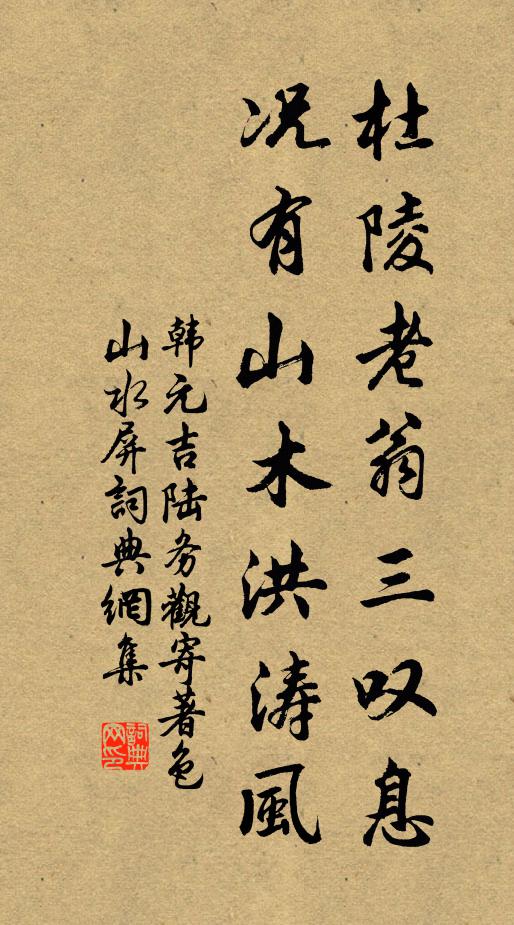 杜陵老翁三叹息
况有山木洪涛風
韩元吉陆务觀寄著色
山水屏詞典網集
詞典网印